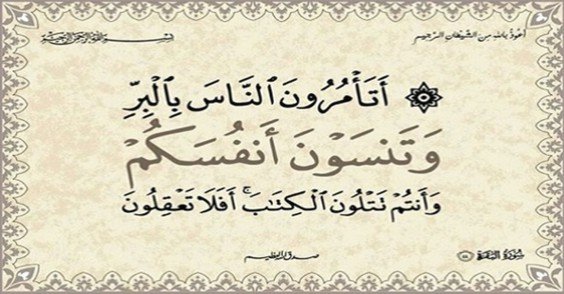 أعوذ بالله من الشيطان الرجيم
بسم الله الرحمن الرحيم
أَتَأْمُرُونَ ٱلنَّاسَ بِٱلْبِرِّ
وَتَنسَوْنَ أَنفُسَكُمْ
وَأَنتُمْ تَتْلُونَ ٱلْكِتَٰبَ ۚ أَفَلَا تَعْقِلُونَ
صدق الله العظيم
سُورَةُ البَقَرَة